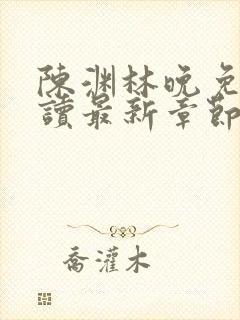 陳渊林晚免
讀最新章節
喬灌木